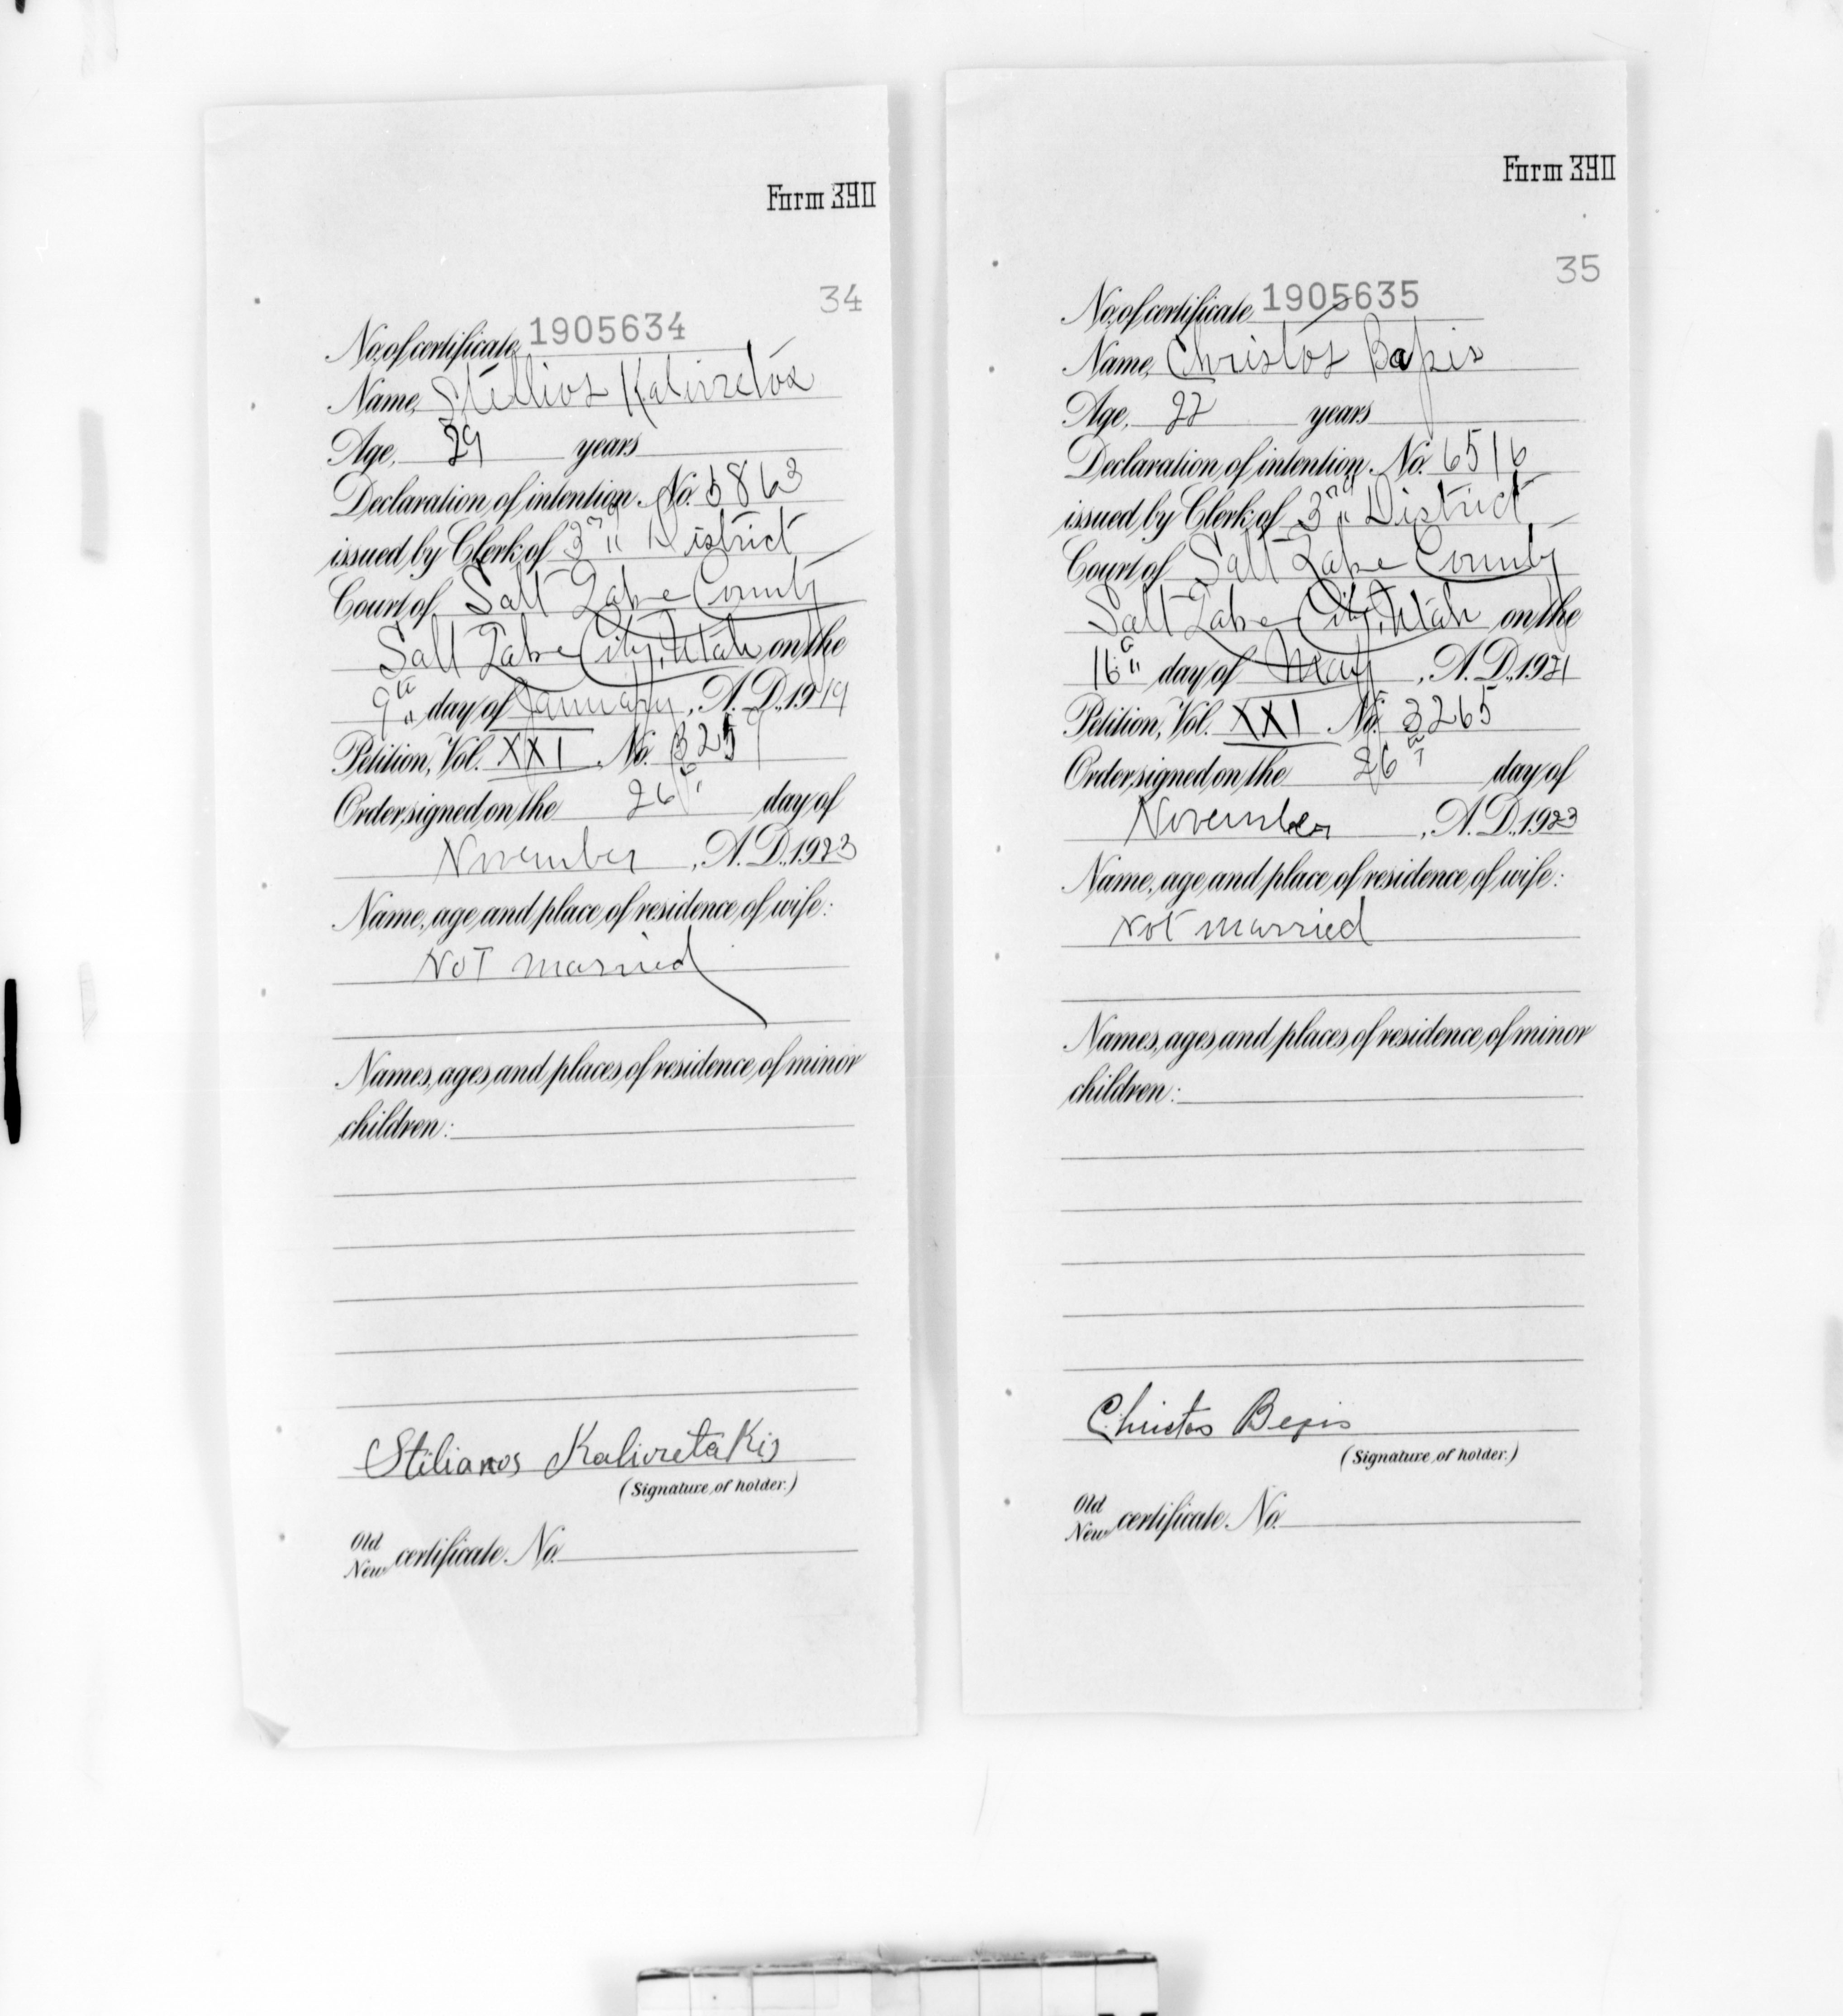 Form 390
34
No. of certificate 1905634
Name, Stellios Kalivretos
Age, 29 years
Declaration of intention No. 5863
issued by Clerk of 3rd District
Court of Salt Lake County
Salt Lake City, Utah on the
9th day of January, A. D. 1919
Petition, Vol. XXI No. 3259
Order signed on the 26th day of
November, A. D. 1923
Name, age and place of residence of wife:
Not married
Names, ages and places of residence of minor
children:
Stilianos Kalivretakis
(Signature of holder.)
Old
New certificate No.
Form 390
35
No. of certificate 1905635
Name, Christos Bapis
Age, 22 years
Declaration of intention No. 6516
issued by Clerk of 3rd District
Court of Salt Lake County
Salt Lake City, Utah on the
16th day of May, A. D. 1921
Petition, Vol. XXI No. 3265
Order signed on the 26th day of
November, A. D. 1923
Name, age and place of residence of wife:
Not married
Names, ages and places of residence of minor
children:
Christos Bepis
(Signature of holder.)
Old
New certificate No.